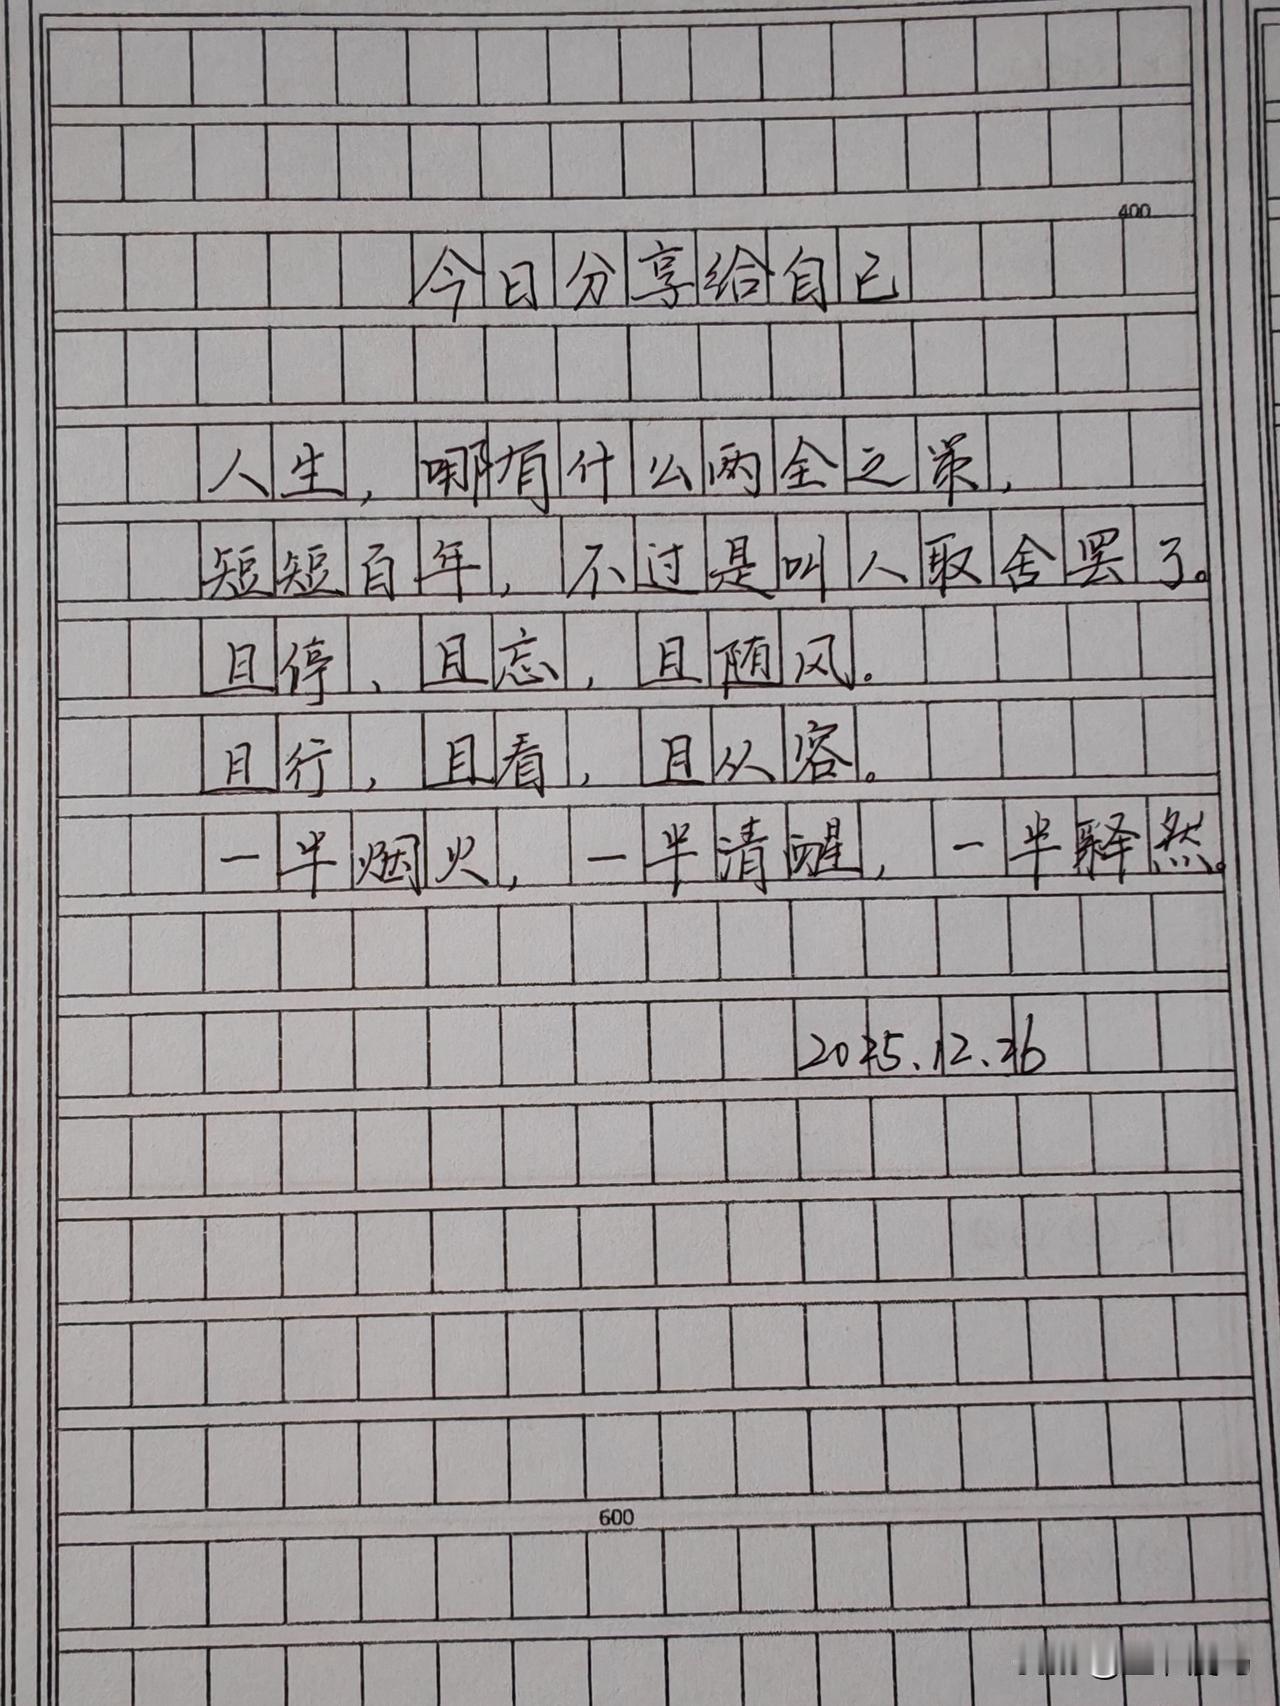 400
今日分享给自己
人生，哪有什么两全之策，
短短百年，不过是叫人取舍罢了。
且停、且忘，且随风。
且行，且看，且从容。
一半烟火，一半清醒，一半释然。
2025.12.26
600